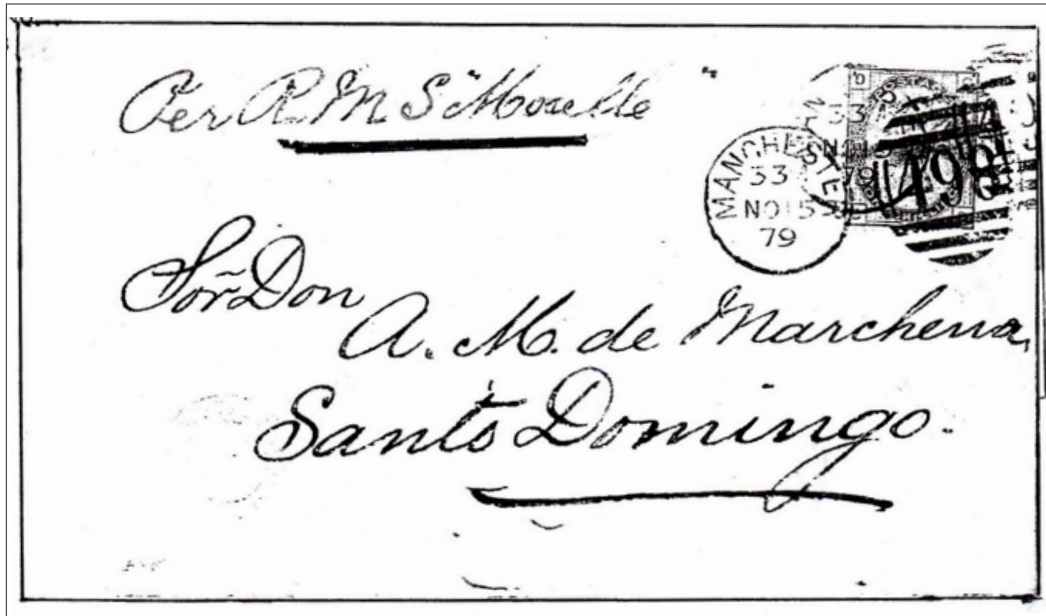 Per R M S "Moselle"
MANCHESTER
33
NO 15
79
498
Sor Don
A. M. de Marchena,
Santo Domingo.